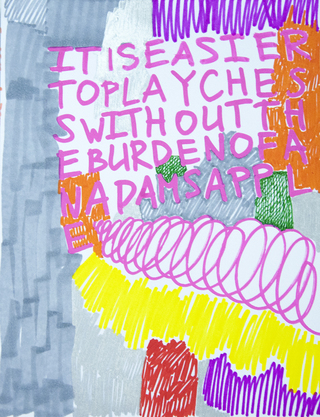 ITISEASIER
TOPLAYCHES
SWITHOUTTH
EBURDENOFA
NADAMSAPPL
E